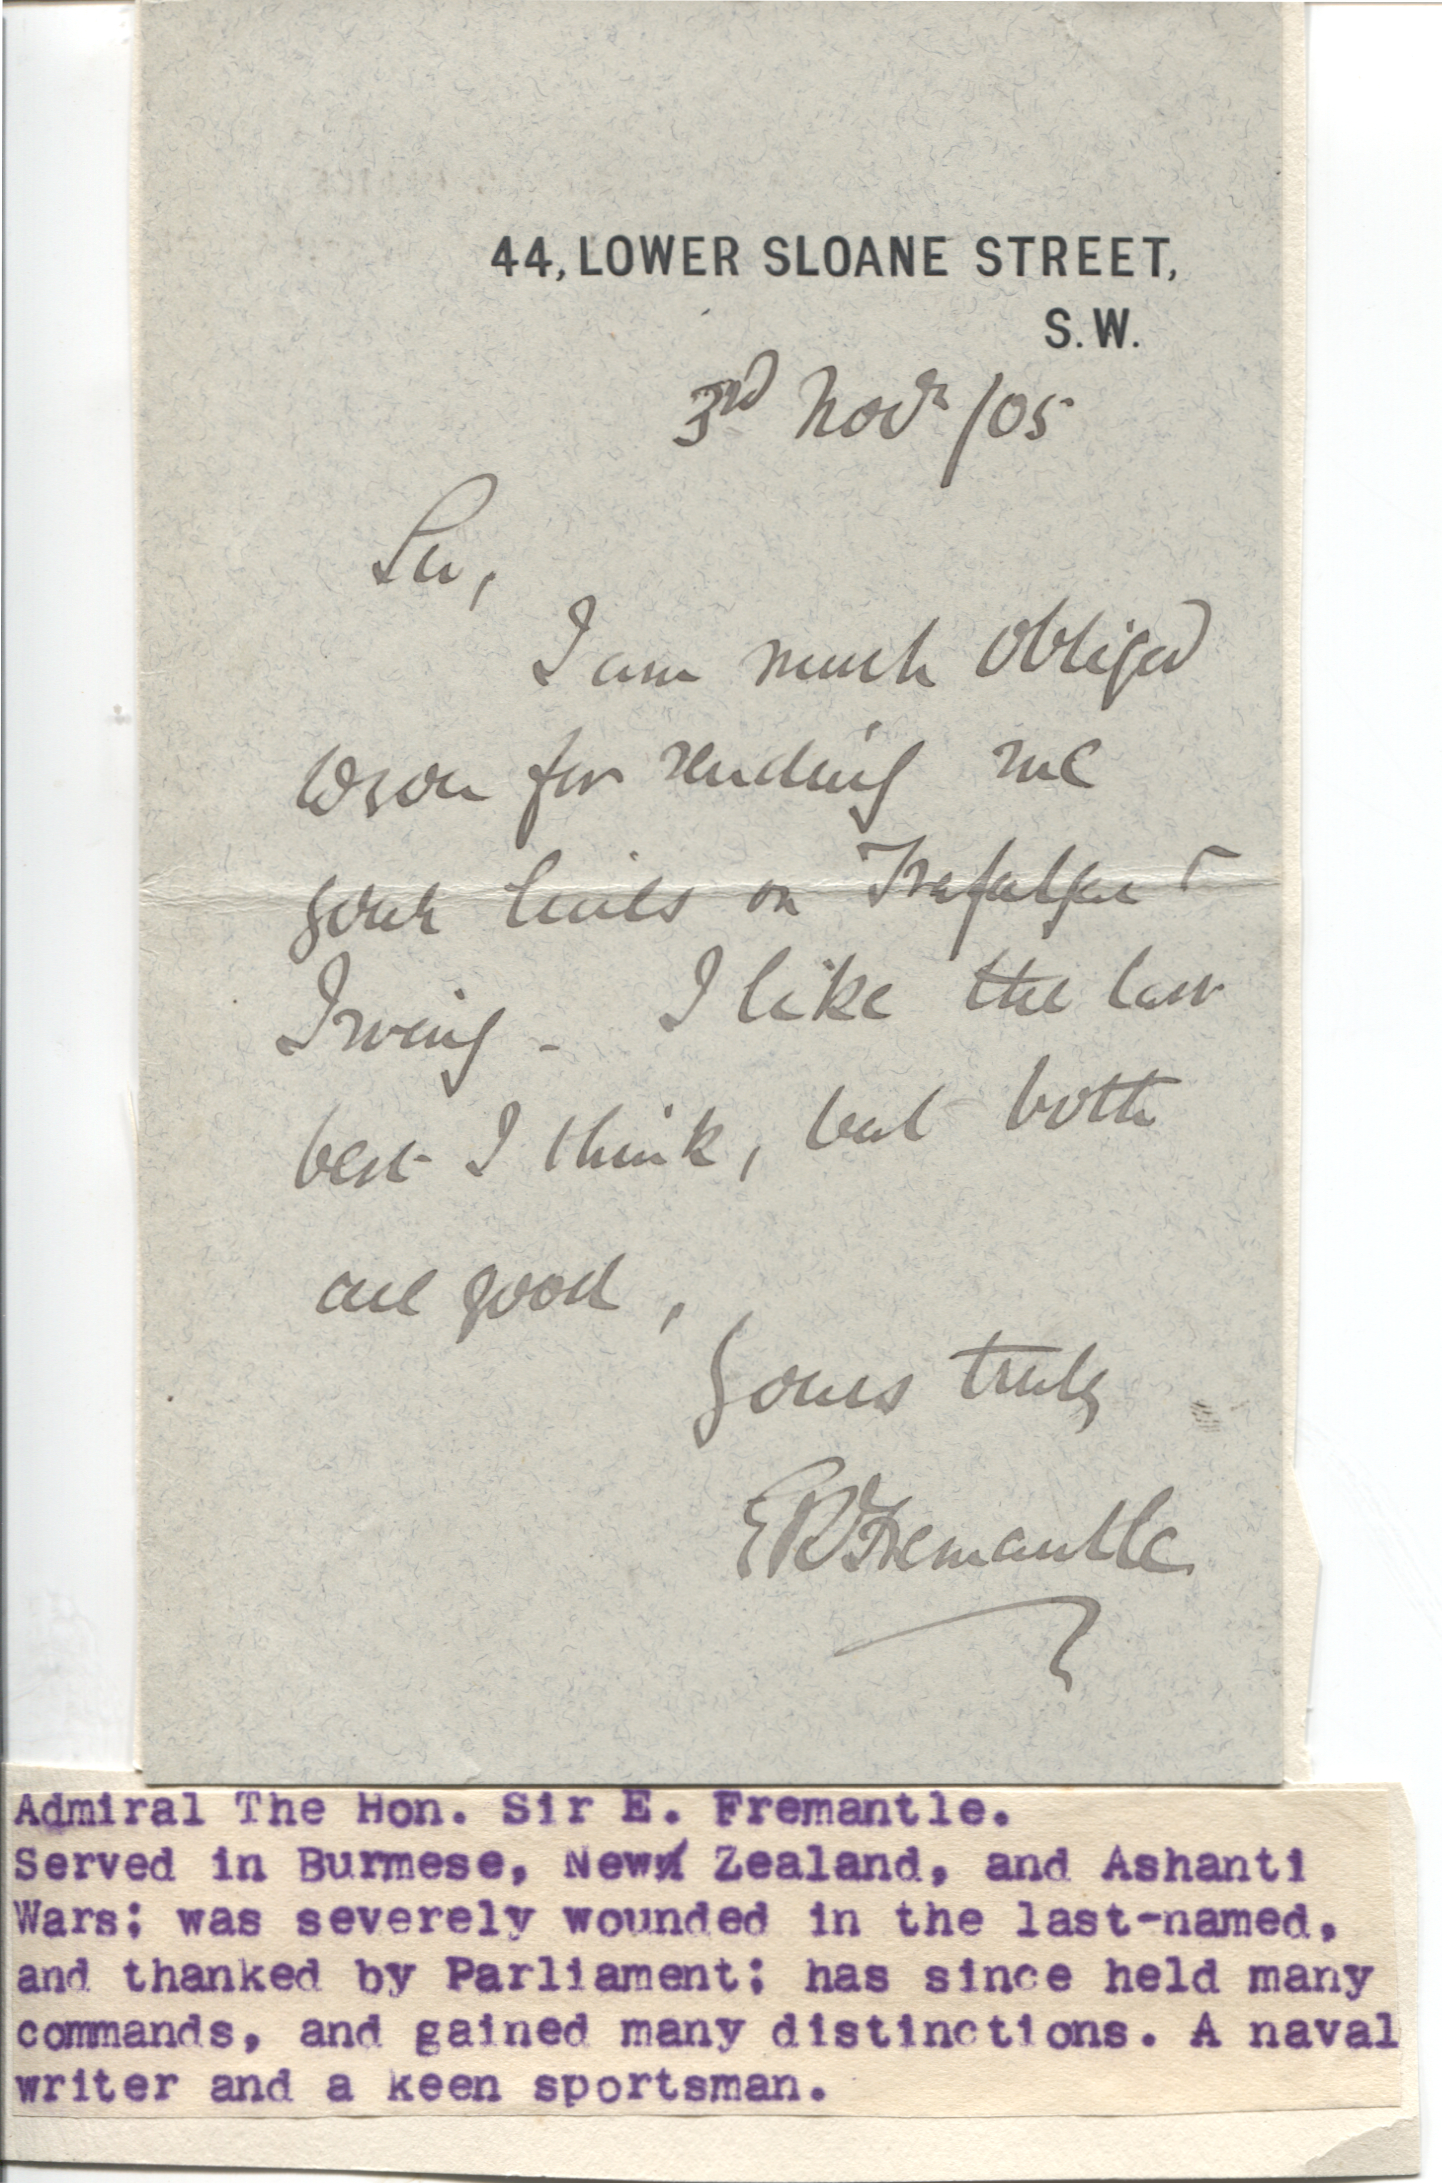 44, LOWER SLOANE STREET,
S.W.
3rd Novr /05
Sir,
I am much obliged
to you for sending me
your lines on Trafalgar &
Irving - I like the last
best I think, but both
are good,
Yours truly
ER Fremantle
Admiral The Hon. Sir E. Fremantle.
Served in Burmese, New Zealand, and Ashanti
Wars; was severely wounded in the last-named,
and thanked by Parliament; has since held many
commands, and gained many distinctions. A naval
writer and a keen sportsman.